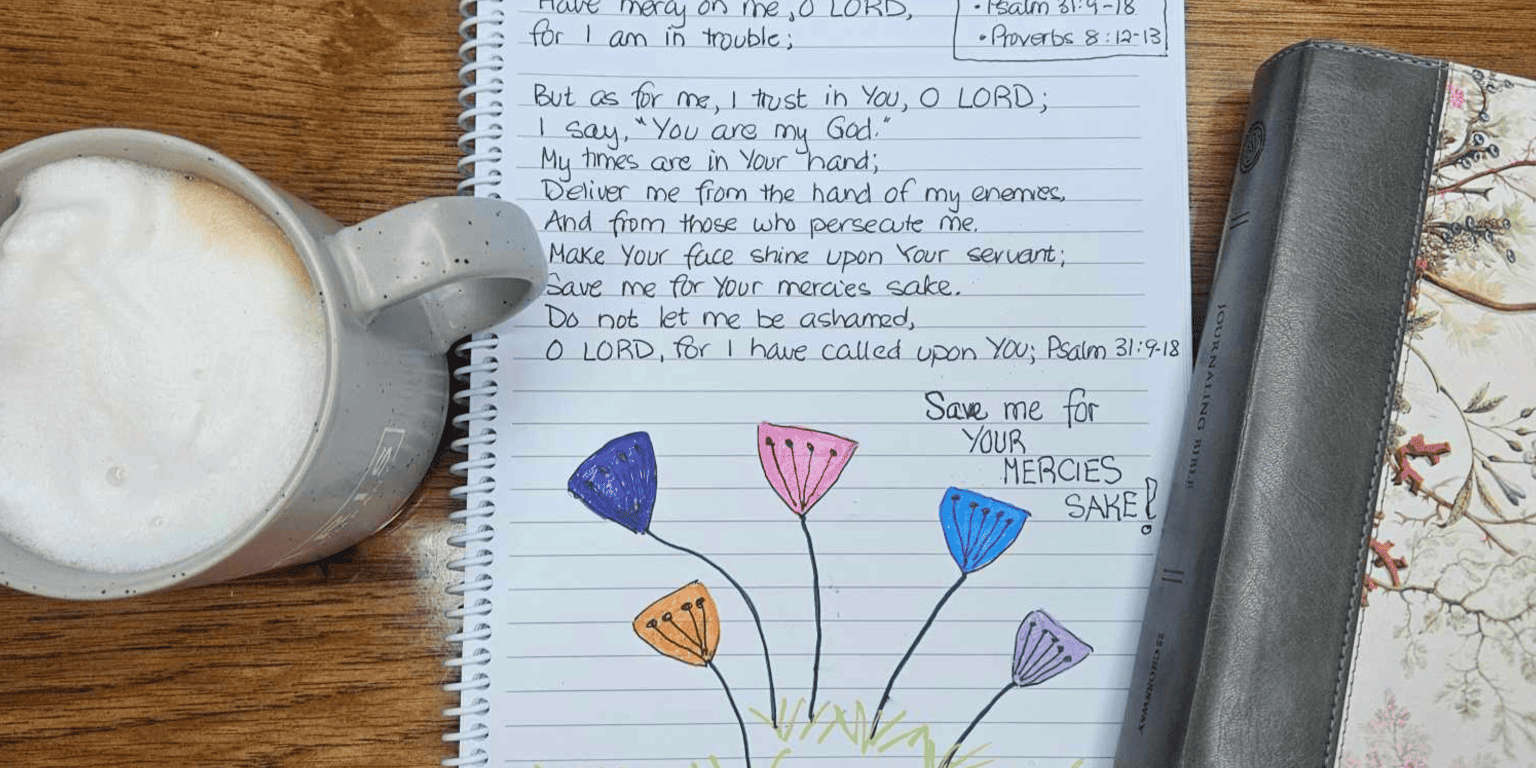 Have mercy on me, O LORD,
for I am in trouble;
• Psalm 31:9-18
• Proverbs 8:12-13
But as for me, I trust in You, O LORD;
I say, "You are my God."
My times are in Your hand;
Deliver me from the hand of my enemies,
And from those who persecute me.
Make Your face shine upon Your servant;
Save me for Your mercies sake.
Do not let me be ashamed,
O LORD, for I have called upon YOU; Psalm 31:9-18
Save me for
YOUR
MERCIES
SAKE!
JOURNALING BIBLE
CROSSWAY